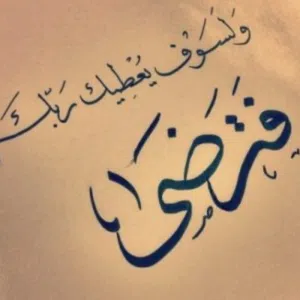 وَلَسَوْفَ يُعْطِيكَ رَبُّكَ
فَتَرْضَىٰ